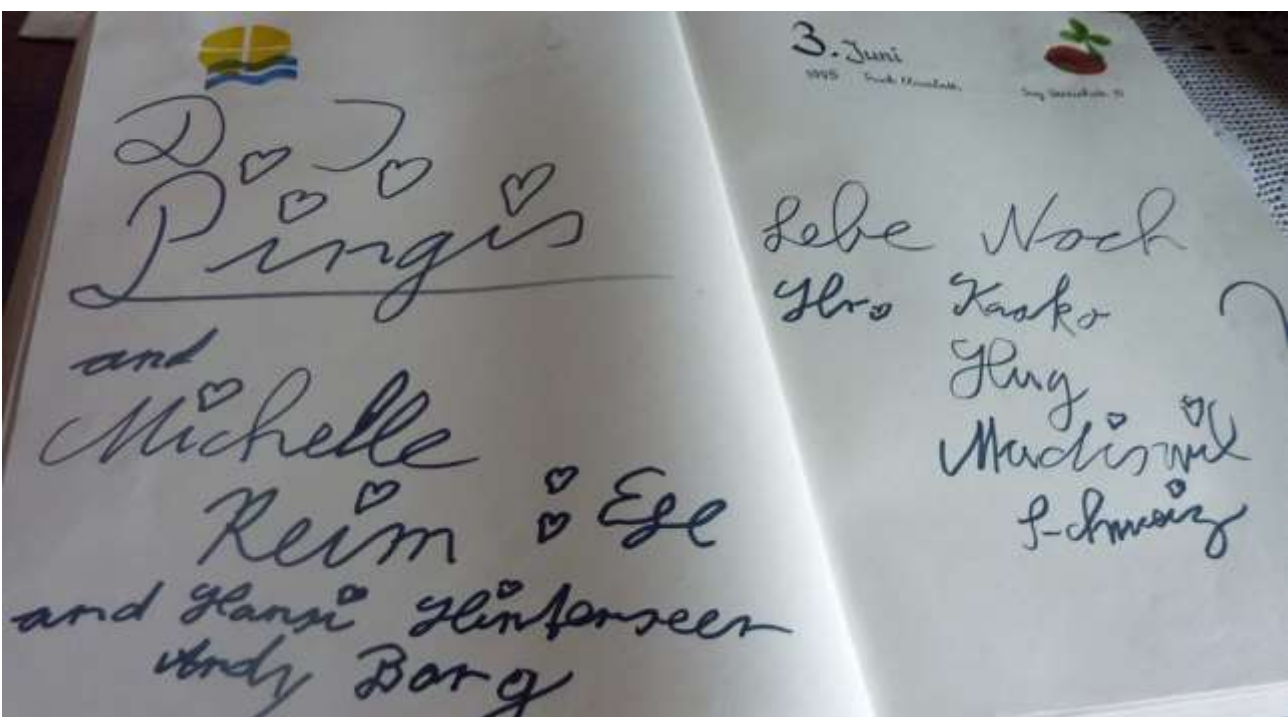 D J
Pingis
and
Michelle
Reim : Ege
and Hansi Hinterseer
Andy Borg
3. Juni
1995
Lebe Noch
Hug
Madiswil
S-chweiz